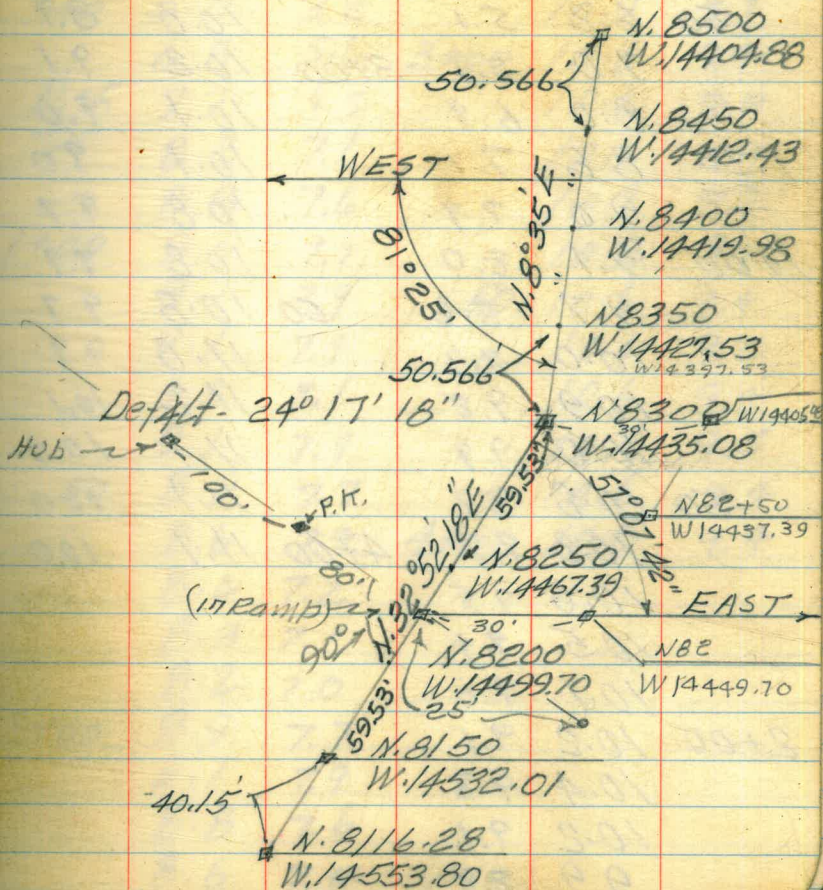 N. 8500
W. 14404.88
50.566'
N. 8450
W. 14412.43
WEST
N. 8°35' E
N. 8400
W. 14419.98
81° 25'
N 8350
W. 14427.53
W 14397.53
50.566'
Def ∠ Lt - 24° 17' 18"
N 8300
W 14405.08
30'
W. 14435.08
Hub
100'
P.K.
59.53'
57° 07' 42"
N 82+50
W 14437.39
N. 8250
W. 14467.39
80'
N. 32° 52' 18" E
(in Ramp)
EAST
90°
30'
N. 8200
W. 14499.70
N 82
W 14449.70
25'
59.53'
N. 8150
W. 14532.01
40.15'
N. 8116.28
W. 14553.80